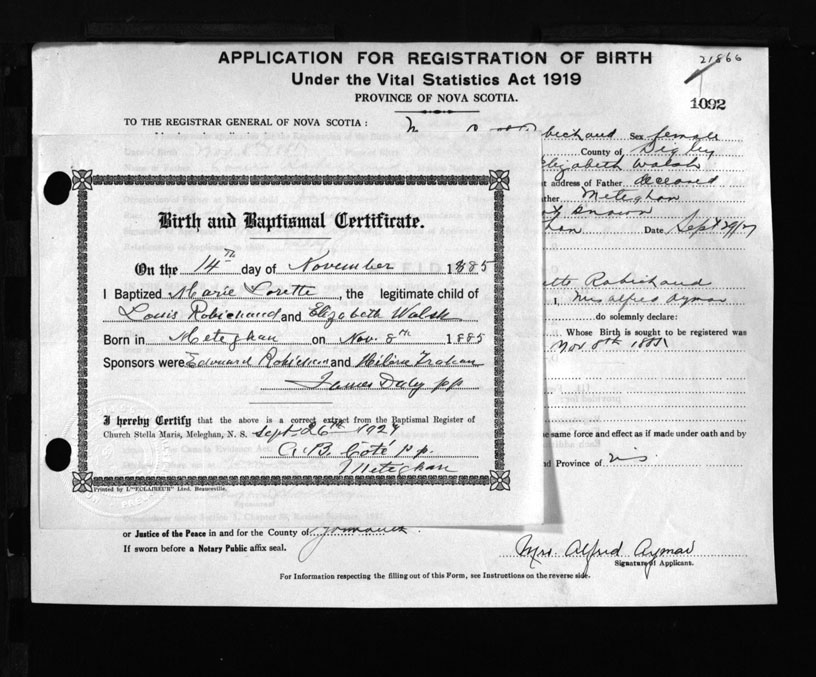 APPLICATION FOR REGISTRATION OF BIRTH
21866
Under the Vital Statistics Act 1919
PROVINCE OF NOVA SCOTIA.
1092
TO THE REGISTRAR GENERAL OF NOVA SCOTIA :
bichaud Sex female
County of Digby
Elizabeth Walsh
address of Father deceased
ther Meteghan
Date Sept 29/27
Robichaud
I, Mrs Alfred Aymar
do solemnly declare:
Whose Birth is sought to be registered was
Nov 8th
same force and effect as if made under oath and by
nd Province of NS
Birth and Baptismal Certificate.
On the 14th day of November 1885
I Baptized Marie Lorette, the legitimate child of
Louis Robichaud and Elizabeth Walsh
Born in Meteghan on Nov. 8th 1885
Sponsors were Edouard Robichaud and Hélène Trahan
James Daly pp
I hereby Certify that the above is a correct extract from the Baptismal Register of
Church Stella Maris, Meleghan, N. S. Sept 26th 1927
A.B. Coté p.p.
Meteghan
Printed by L'"ECLAIREUR" Lted, Beauceville.
or Justice of the Peace in and for the County of Yarmouth.
If sworn before a Notary Public affix seal.
Mrs. Alfred Aymar
Signature of Applicant.
For Information respecting the filling out of this Form, see Instructions on the reverse side.